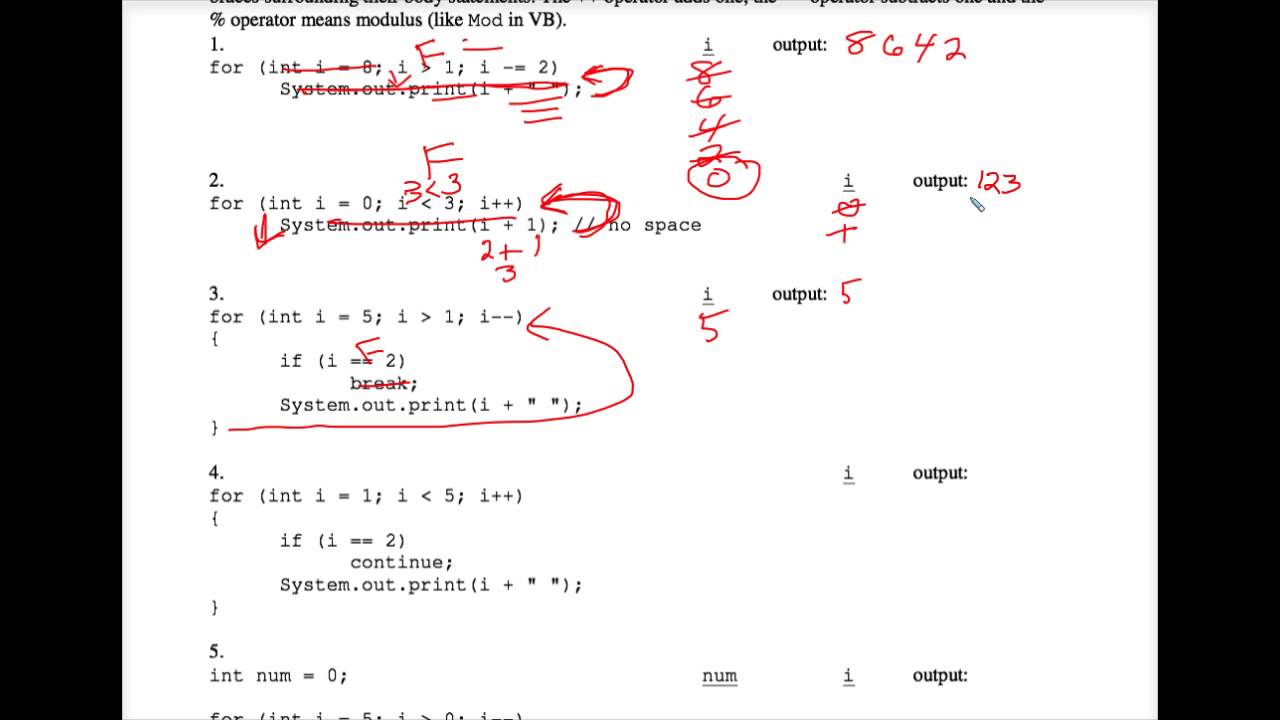 % operator means modulus (like Mod in VB).
1. i output: 8 6 4 2
F
for (int i = 8; i > 1; i -= 2) 8
System.out.print(i + " "); 6
4
2
0
F
2. i output: 123
3<3
for (int i = 0; i < 3; i++) 0
System.out.print(i + 1); // no space 1
2+1
3
3. i output: 5
for (int i = 5; i > 1; i--) 5
{
F
if (i == 2)
break;
System.out.print(i + " ");
}
4. i output:
for (int i = 1; i < 5; i++)
{
if (i == 2)
continue;
System.out.print(i + " ");
}
5.
int num = 0; num i output:
for (int i = 5; i > 0; i--)